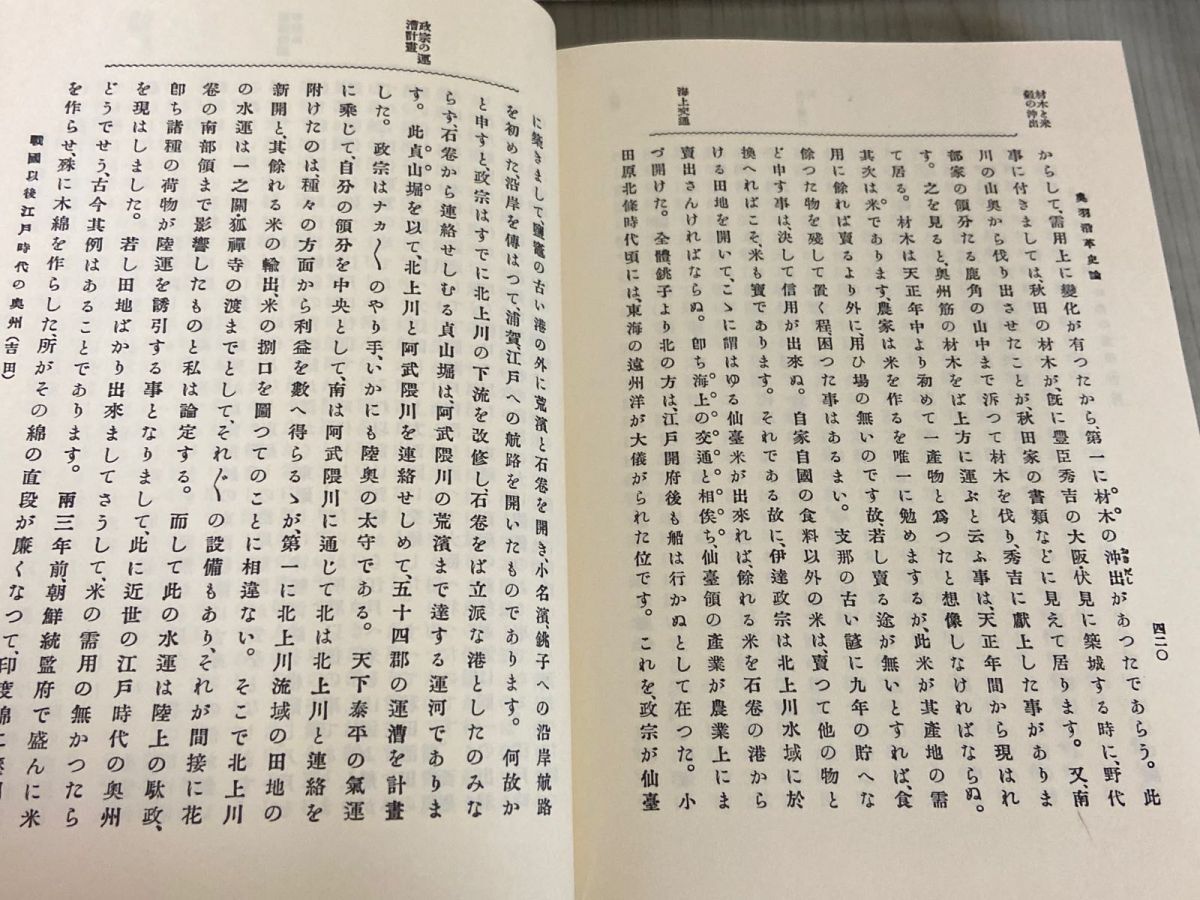 奥羽沿革史論
四二〇
材木と米
穀の沖出
海上交通
からして、需用上に變化が有つたから、第一に材木の沖出があつたであらう。此
おきだし
事に付きましては、秋田の材木が、既に豊臣秀吉の大阪、伏見に築城する時に、野代
川の山奥から伐り出させたことが、秋田家の書類などに見えて居ります。又、南
部家の領分たる鹿角の山中まで泝つて材木を伐り、秀吉に獻上した事がありま
す。之を見ると、奥州筋の材木をば上方に運ぶと云ふ事は、天正年間から現はれ
て居る。材木は天正年中より初めて一產物と爲つたと想像しなければならぬ。
其次は米であります、農家は米を作るを唯一に勉めまするが、此米が其產地の需
用に餘れば賣るより外に用ひ場の無いのです故、若し賣る途が無いとすれば、食
餘つた物を殘して置く程、困つた事はあるまい。支那の古い諺に九年の貯へな
ど申す事は、決して信用が出來ぬ。自家自國の食料以外の米は、賣つて他の物と
換へればこそ、米も寶であります。それである故に、伊達政宗は北上川水域に於
ける田地を開いて、こゝに謂はゆる仙臺米が出來れば、餘れる米を石卷の港から
賣出さんければならぬ。卽ち海上の交通と相俟ち、仙臺領の產業が農業上にま
づ開けた。全體、銚子より北の方は、江戸開府後も船は行かぬとして在つた。小
田原北條時代頃には、東海の遠州洋が大儀がられた位です。これを、政宗が仙臺
政宗の運
漕計畫
に築きまして鹽竈の古い港の外に荒濱と石卷を開き、小名濱、銚子への沿岸航路
を初めた、沿岸を傳はつて、浦賀、江戸への航路を開いたものであります。何故か
と申すと政宗はすでに北上川の下流を改修し、石卷をば立派な港としたのみな
らず、石卷から連絡せしむる貞山堀は、阿武隈川の荒濱まで達する運河でありま
す。此貞山堀を以て、北上川と阿武隈川を連絡せしめて、五十四郡の運漕を計畫
した。政宗はナカ〱のやり手、いかにも陸奥の太守である。天下泰平の氣運
に乘じて、自分の領分を中央として、南は阿武隈川に通じて北は北上川と連絡を
附けたのは、種々の方面から利益を數へ得らるゝが、第一に北上川流域の田地の
新開と、其餘れる米の輸出、米の捌口を圖つてのことに相違ない。そこで北上川
の水運は一之關・狐禪寺の渡までとして、それ〲の設備もあり、それが間接に花
卷の南部領まで影響したものと私は論定する。而して此の水運は陸上の駄政、
卽ち諸種の荷物が陸運を誘引する事となりまして、此に近世の江戸時代の奥州
を現はしました。若し田地ばかり出來ましてさうして、米の需用の無かつたら
どうでせう、古今其例はあることであります。兩三年前、朝鮮統監府で盛んに米
を作らせ、殊に木綿を作らした、所がその綿の直段が廉くなつて、印度綿に
戰國以後江戸時代の奥州（吉田）